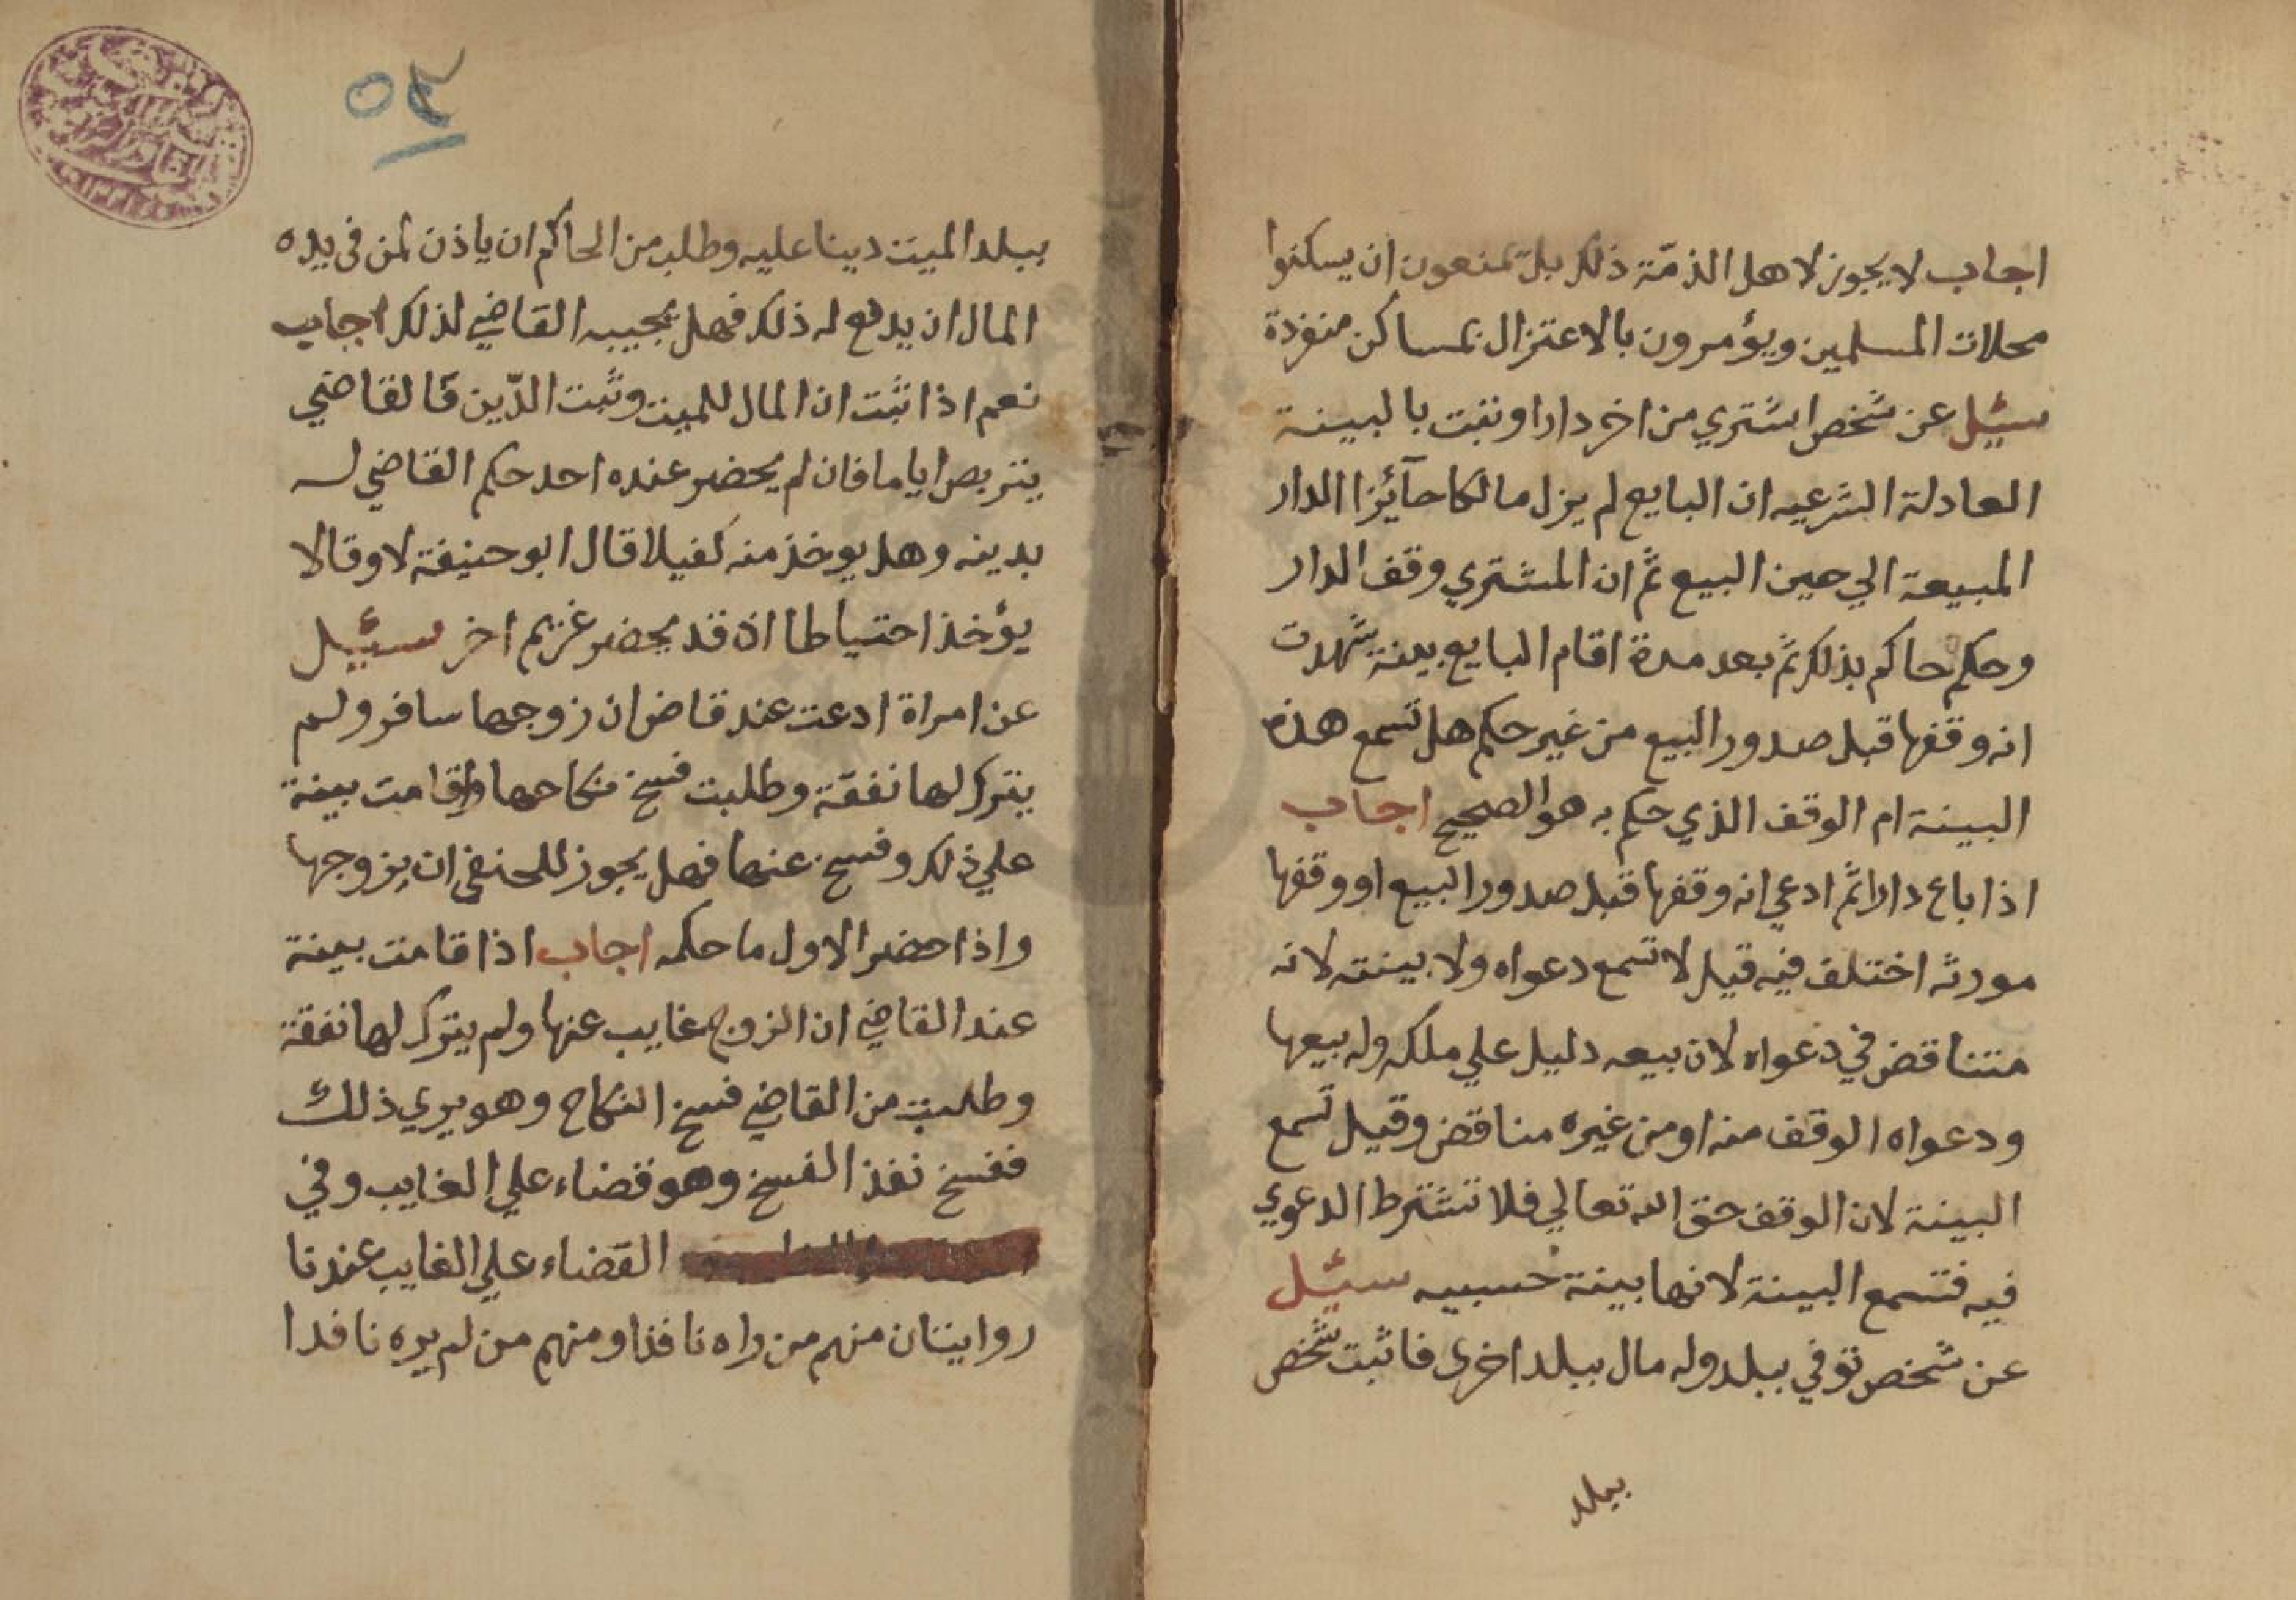 اجاب لا يجوز لاهل الذمّة ذلك بل يمنعون ان يسكنوا
محلات المسلمين ويؤمرون بالاعتزال بمساكن منفردة
سئيل عن شخص اشتري من اخر دارا وثبت بالبينة
العادلة الشرعيه ان البايع لم يزل مالكا حآئزا الدار
المبيعة الي حين البيع ثم ان المشتري وقف الدار
وحكم حاكم بذلك ثم بعد مدة اقام البايع بينة شهدت
انه وقفها قبل صدور البيع من غير حكم هل تسمع هذه
البينة ام الوقف الذي حكم به هو الصحيح اجاب
اذا باع دارا ثم ادعي انه وقفها قبل صدور البيع او وقفها
مورثه اختلف فيه قيل لا تسمع دعواه ولا بينته لانه
متناقض في دعواه لان بيعه دليل علي ملكه وله بيعها
ودعواه الوقف منه او من غيره مناقض وقيل تسمع
البينة لان الوقف حق الله تعالي فلا تشترط الدعوي
فيه فتسمع البينة لانها بينة حسبيه سئيل
عن شخص توفي ببلد وله مال ببلد اخرى فاثبت شخص
ببلد
٥٢
ببلد الميت دينا عليه وطلب من الحاكم ان ياذن لمن في يده
المال ان يدفع له ذلك فهل يجيبه القاضي لذلك اجاب
نعم اذا ثبت ان المال للميت وثبت الدّين فالقاضي
يتربص اياما فان لم يحضر عنده احد حكم القاضي له
بدينه وهل يوخذ منه كفيلا قال ابو حنيفة لا وقالا
يؤخذ احتياطا اذ قد يحضر غريم اخر سئيل
عن امراة ادعت عند قاض ان زوجها سافر ولم
يترك لها نفقة وطلبت فسخ نكاحها واقامت بينة
علي ذلك وفسخ عنها فهل يجوز للحنفي ان يزوجها
واذا حضر الاول ما حكمه اجاب اذا قامت بينة
عند القاضي ان الزوج غايب عنها ولم يترك لها نفقة
وطلبت من القاضي فسخ النكاح وهو يري ذلك
ففسخ نفذ الفسخ وهو قضاء علي الغايب وفي
القضاء علي الغايب عندنا
روايتان منهم من راه نافذا ومنهم من لم يره نافدا